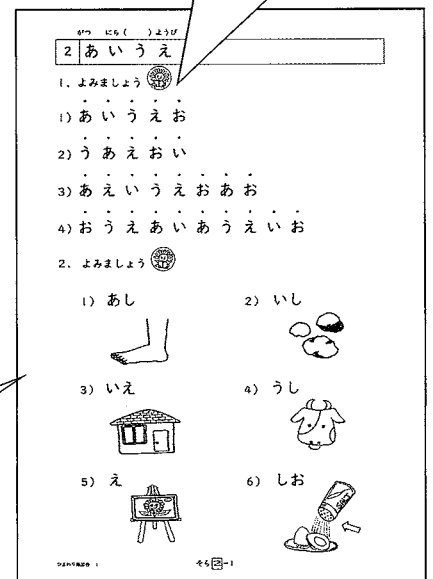 がつ にち( )ようび
2 あいうえ
1、よみましょう
1) あいうえお
2) うあえおい
3) あえいうえおあお
4) おうえあいあうえいお
2、よみましょう
1) あし 2) いし
3) いえ 4) うし
5) え 6) しお
そら2-1